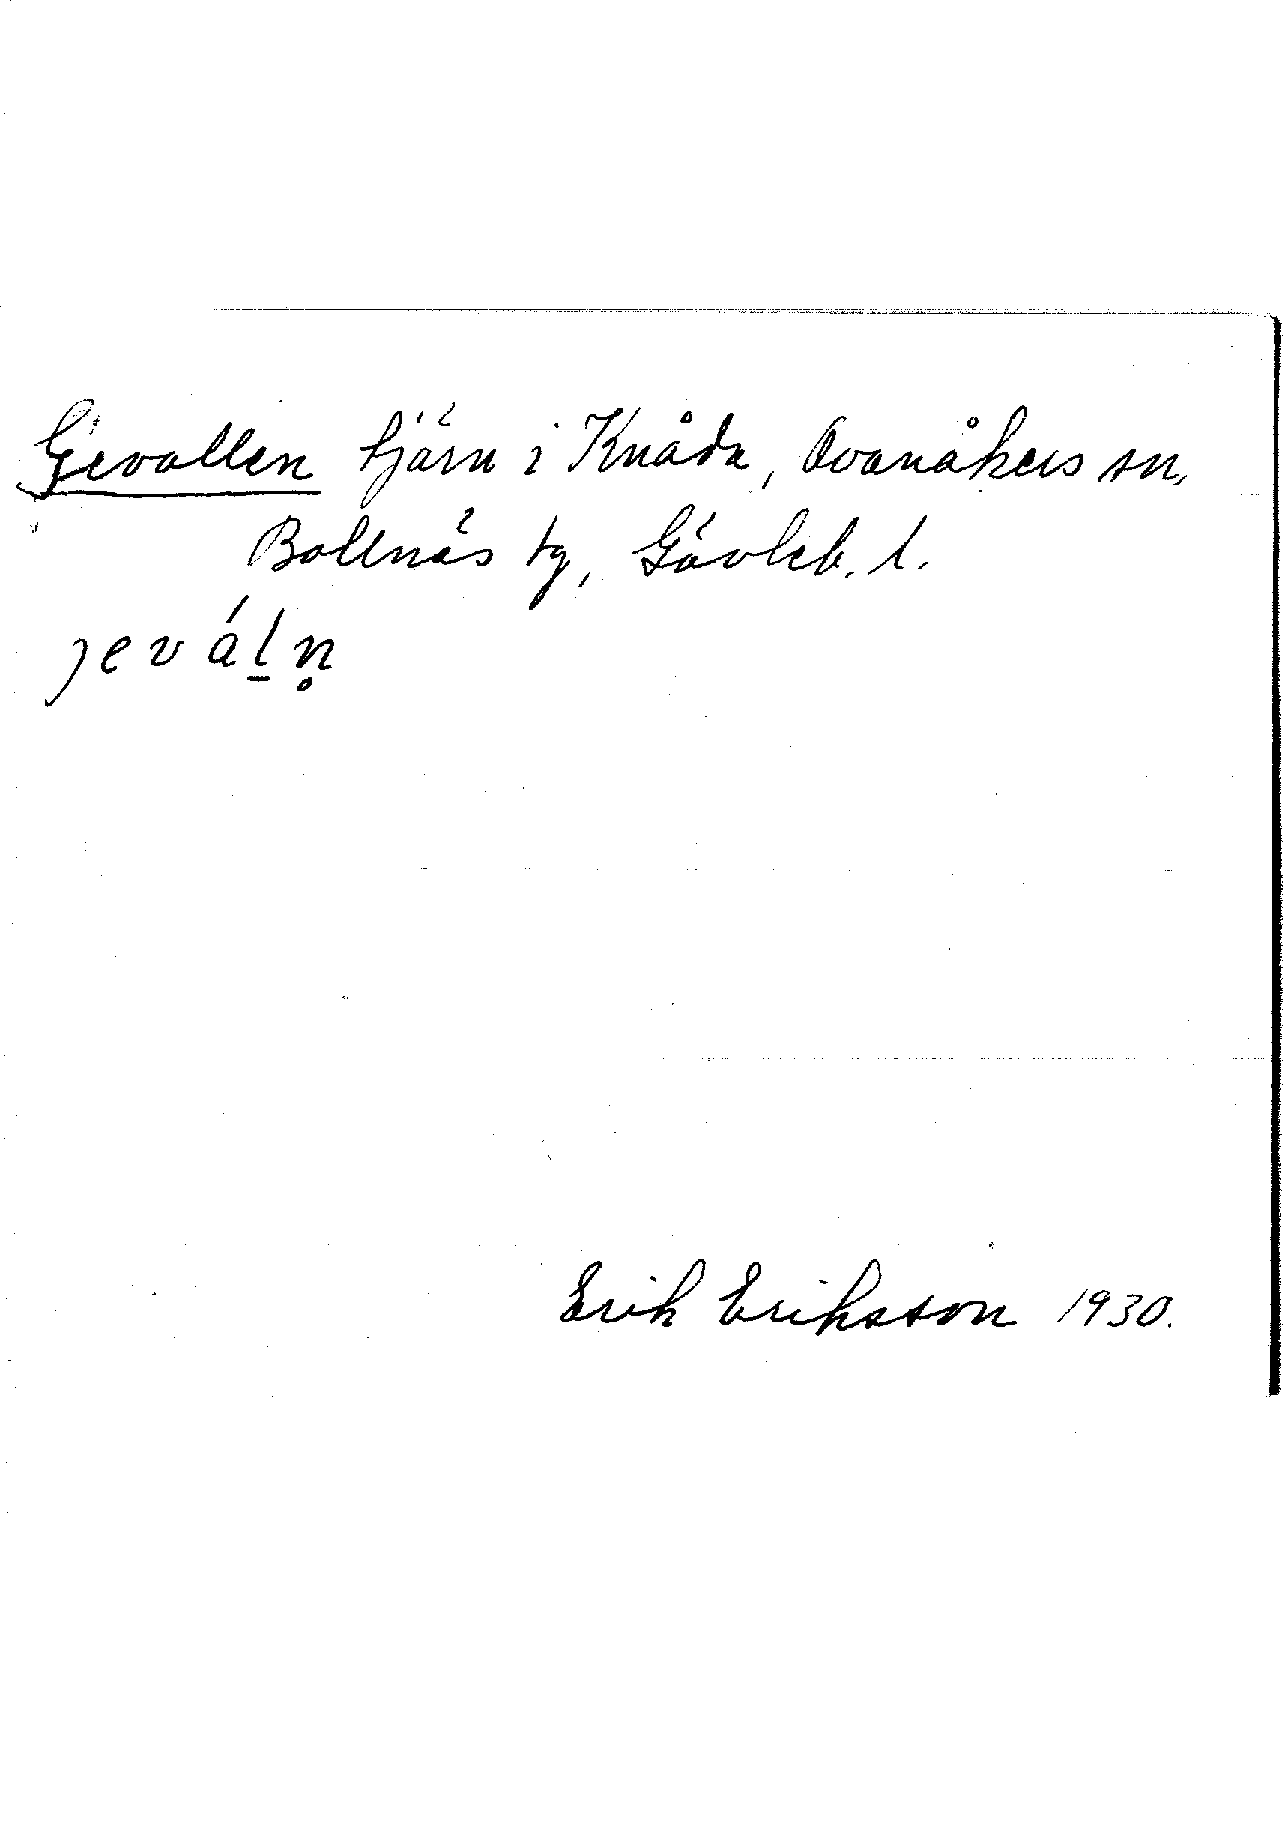 Gevallen tjärn i Knåda, Ovanåkers sn,
Bollnäs tg, Gävleb. l.
jeváḻn̥
Erik Eriksson 1930.